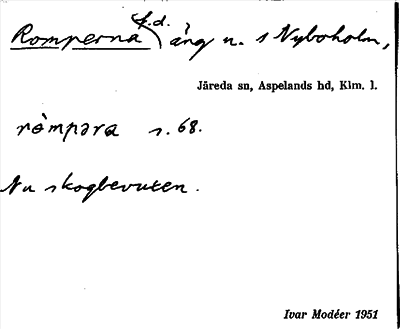 Romperna f.d. äng u. s Nyboholm,
Järeda sn, Aspelands hd, Klm. l.
ròmpəra s. 68.
Nu skogbevuxen.
Ivar Modéer 1951